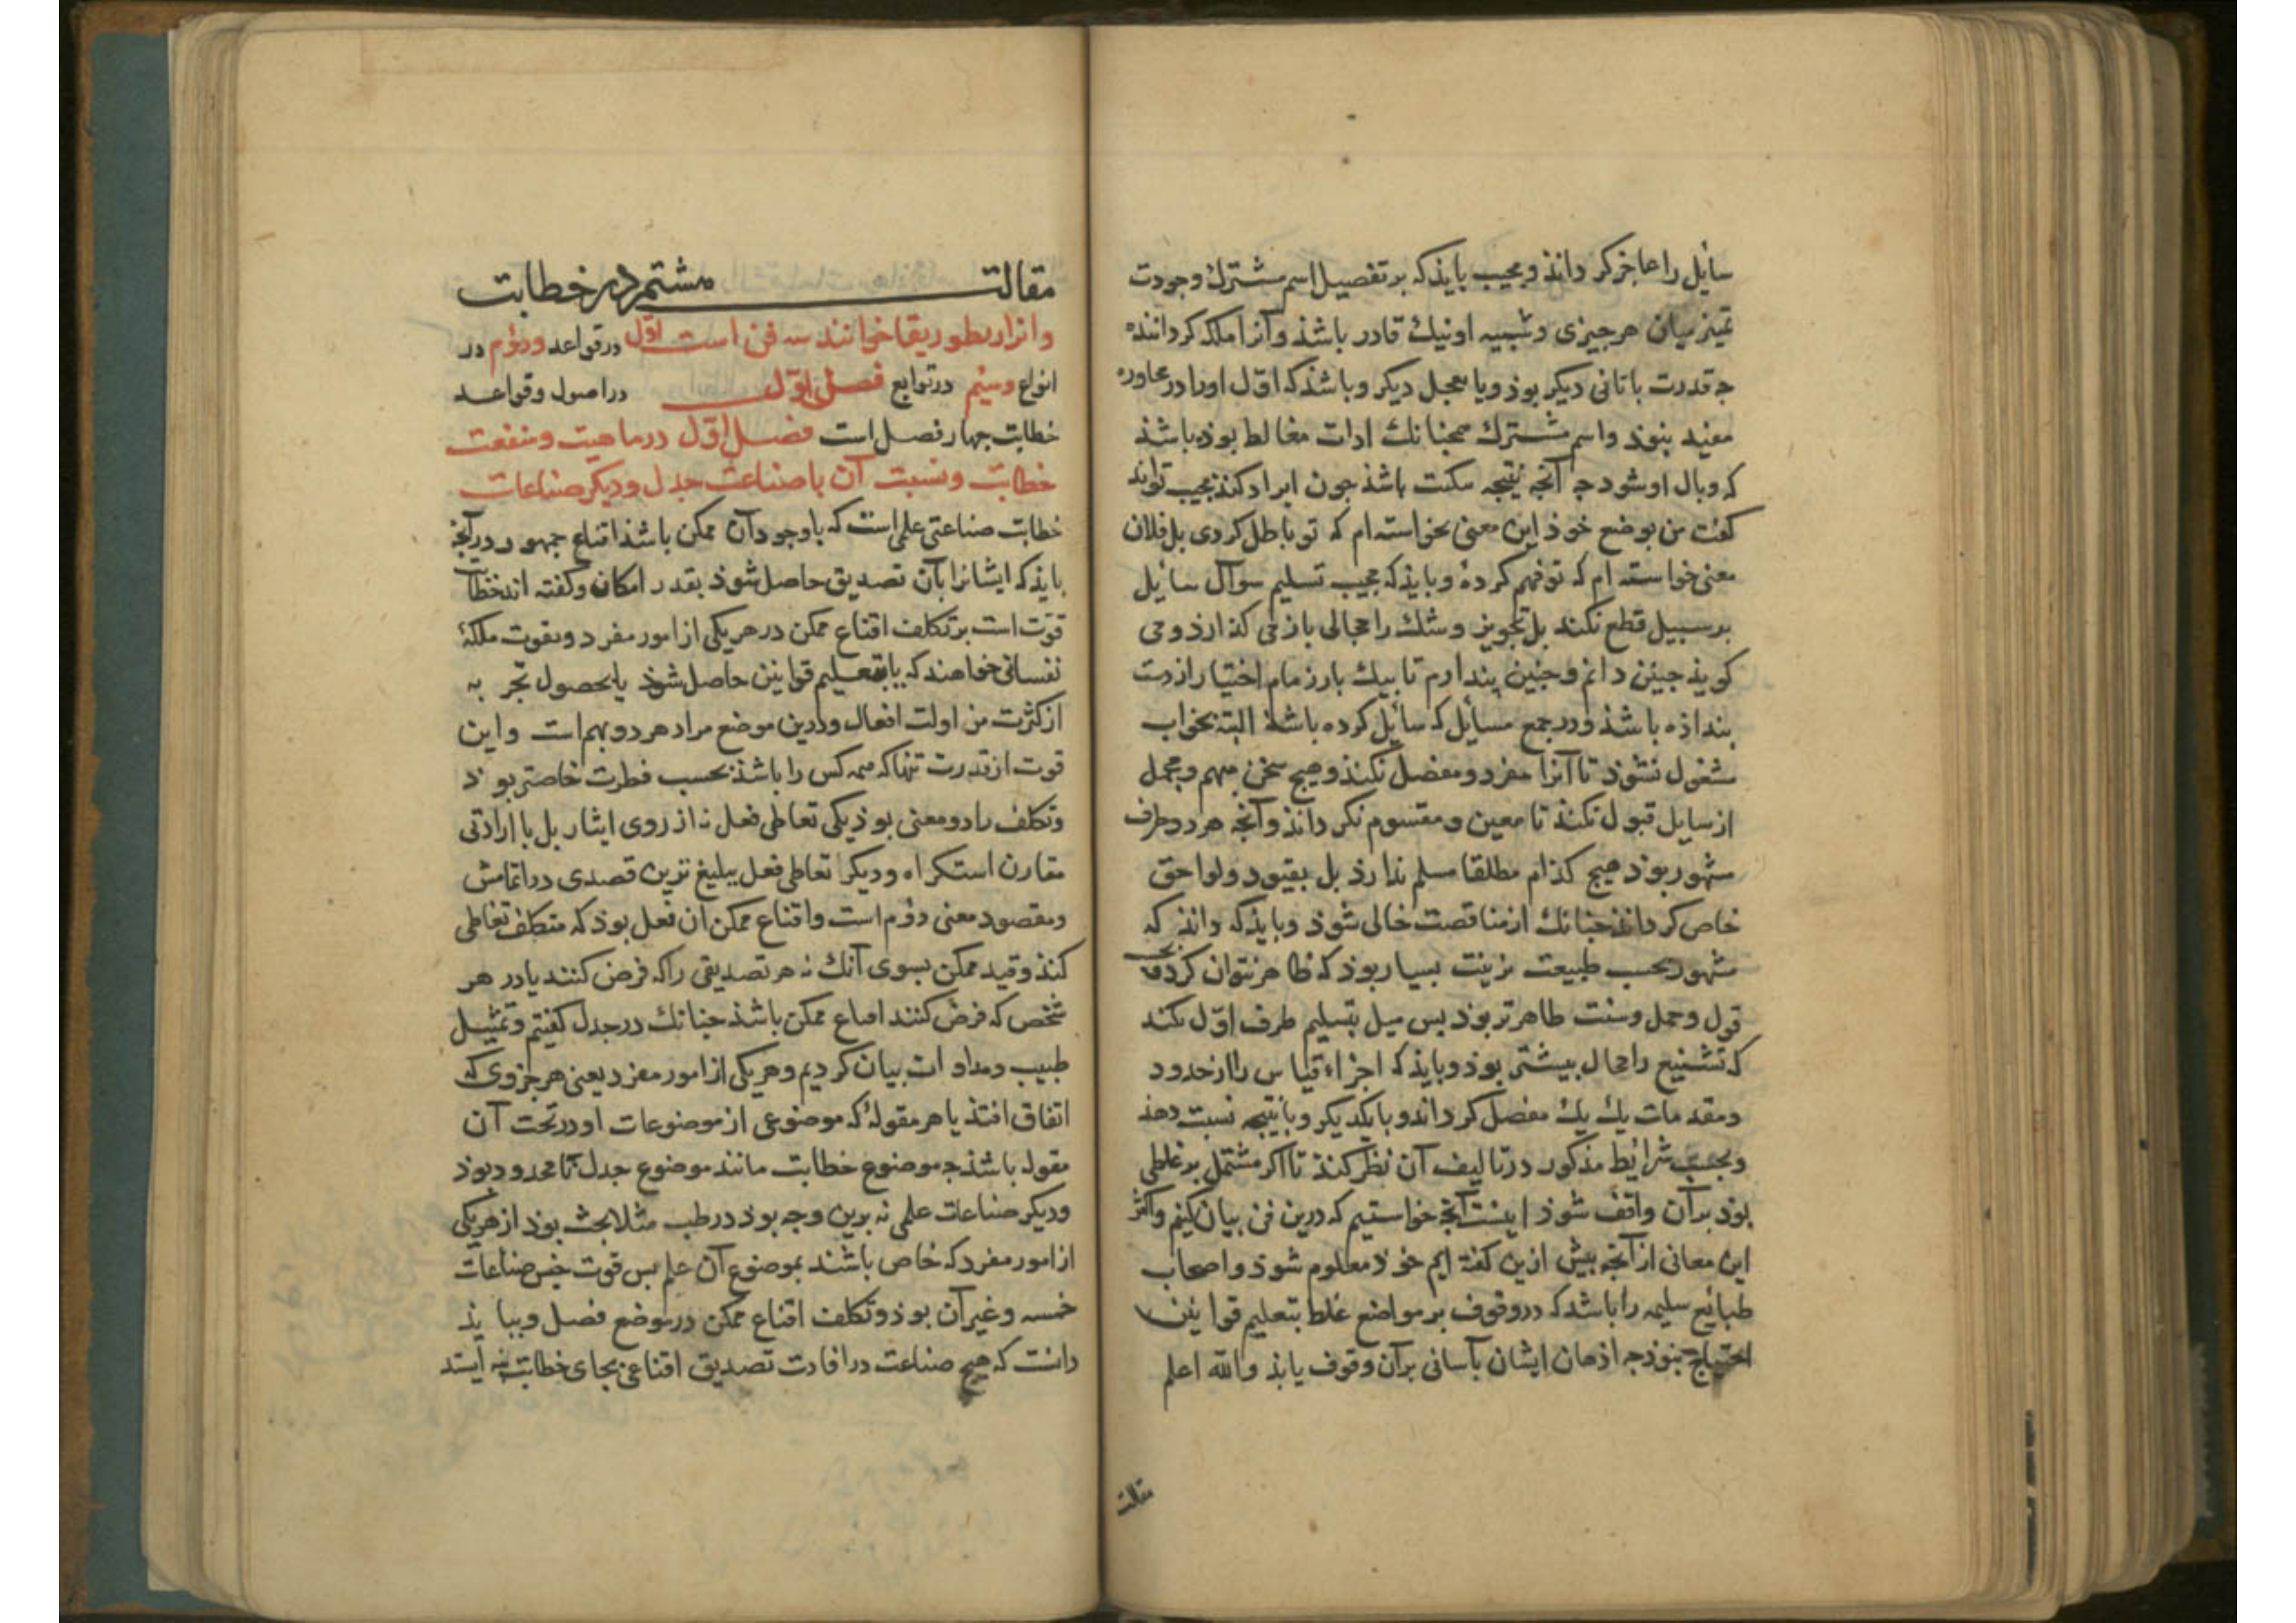 سایل را عاجز کرداند و مجیب بایذ که بر تفصیل اسم مشترک وجودت
تمیز میان هر جیزی و شبیه او نیک قادر باشذ و آنرا ملکه کرداننده
جه قدرت باتانی دیکر بوذ و با عجل دیکر و باشذ که اول او را در محاوره
مفید نبوذ و اسم مشترک همجنانک ادات مغالط بوذه باشذ
که وبال او شود جه آنجه نتیجه مکت باشذ جون ایراد کنذ مجیب تواند
کفت من بوضع خوذ این معنی نخواسته ام که تو باطل کردی بل فلان
معنی خواسته ام که تو فهم کردهٔ و بایذ که مجیب تسلیم سوال سایل
بر سبیل قطع نکند بل تجویز و شک را مجالی باز می کذارذ و می
کویذ جنین دانم و جنین پندارم تا بیک بار زمام اختیار از دست
بنداذه باشذ و در جمع مسائل که سائل کرده باشذ البته بجواب
مشغول نشوذ تا آنرا مفرد و مفصل نکنذ و هیج سخن مبهم و مجمل
از سایل قبول نکنذ تا معین و مقسوم نکرداند و آنجه هر دو طرف
مشهور بوذ هیج کذام مطلقا مسلم ندارذ بل بقیود و لواحق
خاص کرداند جنانک از مناقضت خالی شوذ و بایذ که داند که
مشهور بحسب طبیعت بسیار بوذ که ظاهر نتوان کرد و بحسب
قول و حمل و سنت ظاهرتر بوذ بس میل بتسلیم طرف اول نکند
که تشنیع را مجال بیشتر بوذ و بایذ که اجزاء قیاس را از حدود
و مقدمات یک یک مفصل کرداند و با یکدیکر و با نتیجه نسبت دهذ
و بحسب شرایط مذکور در تالیف آن نظر کنذ تا اکر مشتمل بر غلطی
بوذ بر آن واقف شوذ اینست آنجه خواستیم که درین فن بیان کنیم و اکثر
این معانی از آنجه بیش ازین کفته ایم خوذ معلوم شوذ و اصحاب
طبایع سلیمه را باشد که در وقوف بر مواضع غلط بتعلیم قوانین
احتیاج نبوذ جه اذهان ایشان بآسانی بر آن وقوف یابذ والله اعلم
مقالت
مقالت هشتم در خطابت
و آنرا ریطوریقا خوانند سه فن است اول در قواعد و دوم در
انواع و سیم در توابع فصل اول در اصول و قواعد
خطابت جهار فصل است فصل اول در ماهیت و منفعت
خطابت و نسبت آن با صناعت جدل و دیکر صناعات
خطابت صناعتی علمی است که با وجود آن ممکن باشذ اقناع جمهور در آنجه
بایذ که ایشانرا بآن تصدیق حاصل شوذ بقدر امکان و کفته اند خطابت
قوت است بر تکلف اقناع ممکن در هر یکی از امور مفرد و بقوت ملکهٔ
نفسانی خواهند که یا بتعلیم قوانین حاصل شوذ یا بحصول تجربه
از کثرت مزاولت افعال و درین موضع مراد هر دو بهم است و این
قوت از قدرت تنها که همه کس را باشذ بحسب فطرت خاصتر بوذ
و تکلف را دو معنی بوذ یکی تعاطی فعل نه از روی ایثار بل با ارادتی
مقارن استکراه و دیکر تعاطی فعل ببلیغ ترین قصدی در اتمامش
و مقصود معنی دوم است و اقناع ممکن ان فعل بوذ که متکلف تعاطی
کنذ و قید ممکن بسوی آنک نه هر تصدیقی را که فرض کنند یا در هر
شخص که فرض کنند اقناع ممکن باشذ جنانک در جدل کفتیم و تمثیل
طبیب و مداوات بیان کردیم و هر یکی از امور مفرد یعنی هر جزوی که
اتفاق افتذ یا هر مقولهٔ که موضوعی از موضوعات او در تحت آن
مقوله باشذ جه موضوع خطابت مانند موضوع جدل نامحدود بوذ
و دیکر صناعات علمی نه برین وجه بوذ در طب مثلا بحث بوذ از هر یکی
از امور مفرد که خاص باشند بموضوع آن علم بس قوت جنس صناعات
خمسه و غیر آن بوذ و تکلف اقناع ممکن در موضع فصل و ببایذ
دانست که هیج صناعت در افادت تصدیق اقناعی بجای خطابت نه ایستد